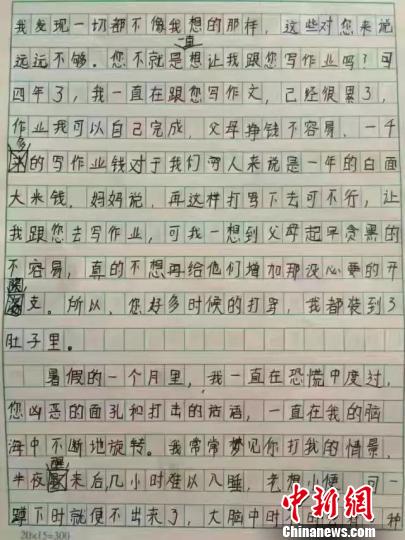 我发现一切都不像我想的那样，这些对您来说
远远不够。您不就是一直想让我跟您写作业吗？可
四年了，我一直在跟您写作文，已经很累了，
作业我可以自己完成，父母挣钱不容易，一千
多的写作业钱对于我们穷人来说是一年的白面
大米钱，妈妈说，再这样打骂下去可不行，让
我跟您去写作业，可我一想到父母起早贪黑的
不容易，真的不想再给他们增加那没必要的开
支。所以，您好多时候的打骂，我都装到了
肚子里。
暑假的一个月里，我一直在恐慌中度过，
您凶恶的面孔和打击的话语，一直在我的脑
海中不断地旋转。我常常梦见你打我的情景，
半夜醒来后几小时难以入睡，老想小便，可一
蹲下时就便不出来了，大脑中时
种
20×15=300
中新网
WWW.CHINANEWS.COM